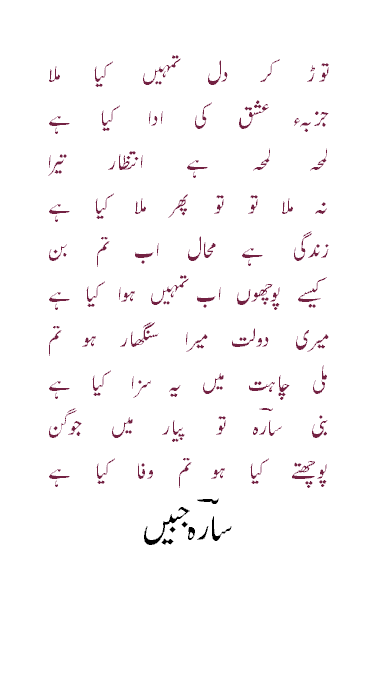 توڑ کر دل تمہیں کیا ملا
جزبہء عشق کی ادا کیا ہے
لمحہ لمحہ ہے انتظار تیرا
نہ ملا تو تو پھر ملا کیا ہے
زندگی ہے محال اب تم بن
کیسے پوچھوں اب تمہیں ہوا کیا ہے
میری دولت میرا سنگھار ہو تم
ملی چاہت میں یہ سزا کیا ہے
بنی سارہؔ تو پیار میں جوگن
پوچھتے کیا ہو تم وفا کیا ہے
سارہؔ جبیں